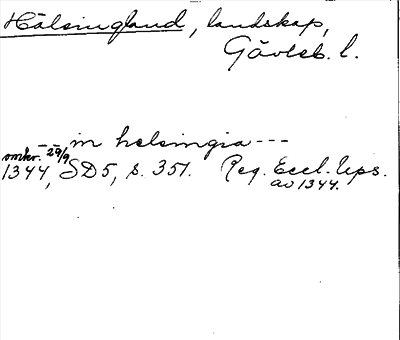 Hälsingland, landskap,
Gävleb. l.
--- in helsingia ---
omkr. 29/9
1344, SD5, s. 351. Reg. Eccl. Ups.
av 1344.